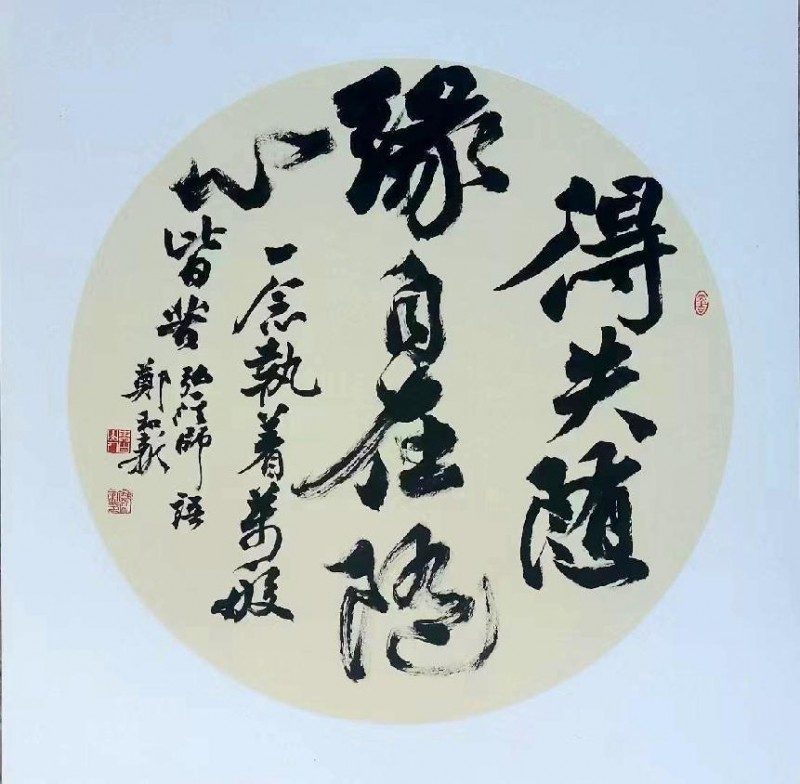 得失随
緣自在随
心
一念執着萬般
皆苦
弘一法師語
鄭和